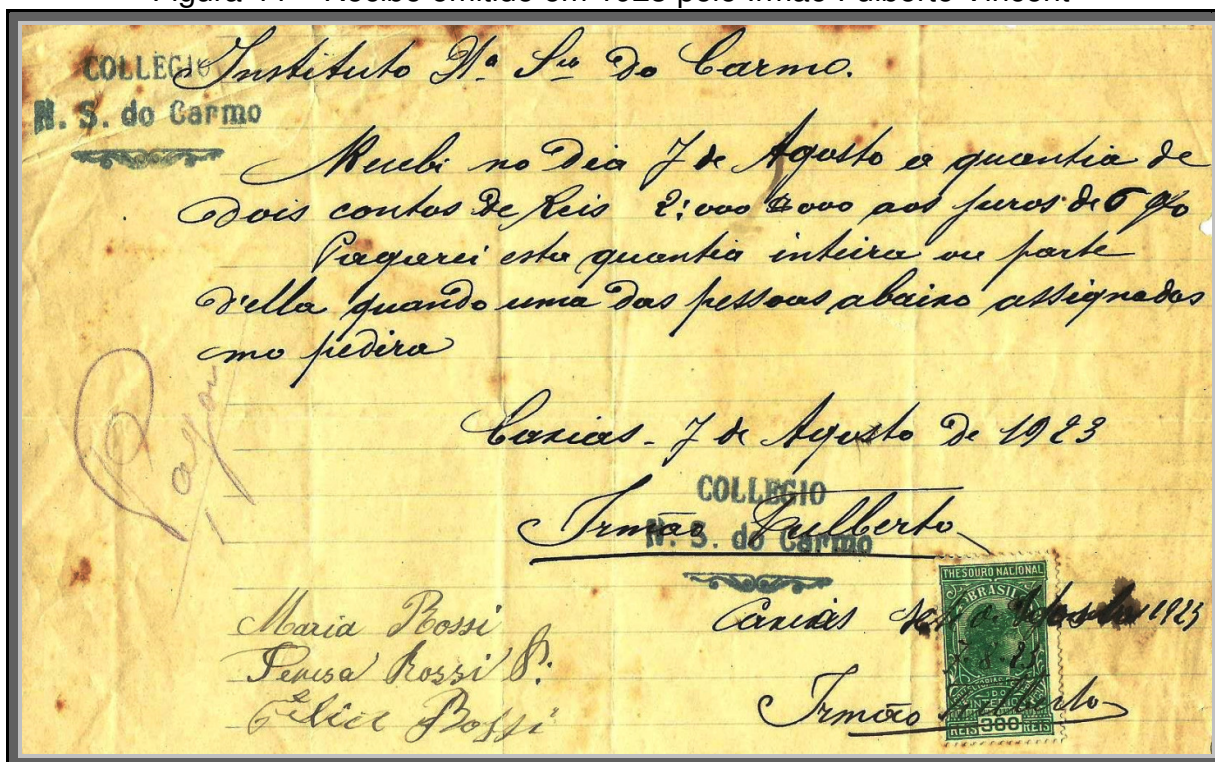 COLLEGIO
N. S. do Carmo
Instituto Nª Sra do Carmo.
Recebi no dia 7 de Agosto a quantia de
dois contos de Reis 2:000$000 aos juros de 6 %
Pagarei esta quantia inteira ou parte
d'ella quando uma das pessoas abaixo assignadas
mo pedira
Pagou
Caxias - 7 de Agosto de 1923
COLLEGIO
N. S. do Carmo
Irmão Fulberto
THESOURO NACIONAL
BRASIL
Caxias de Agosto 1923
7-8-23
Maria Rossi
Teresa Rossi P.
Felice Rossi
Irmão Fulberto
REIS 300 REIS